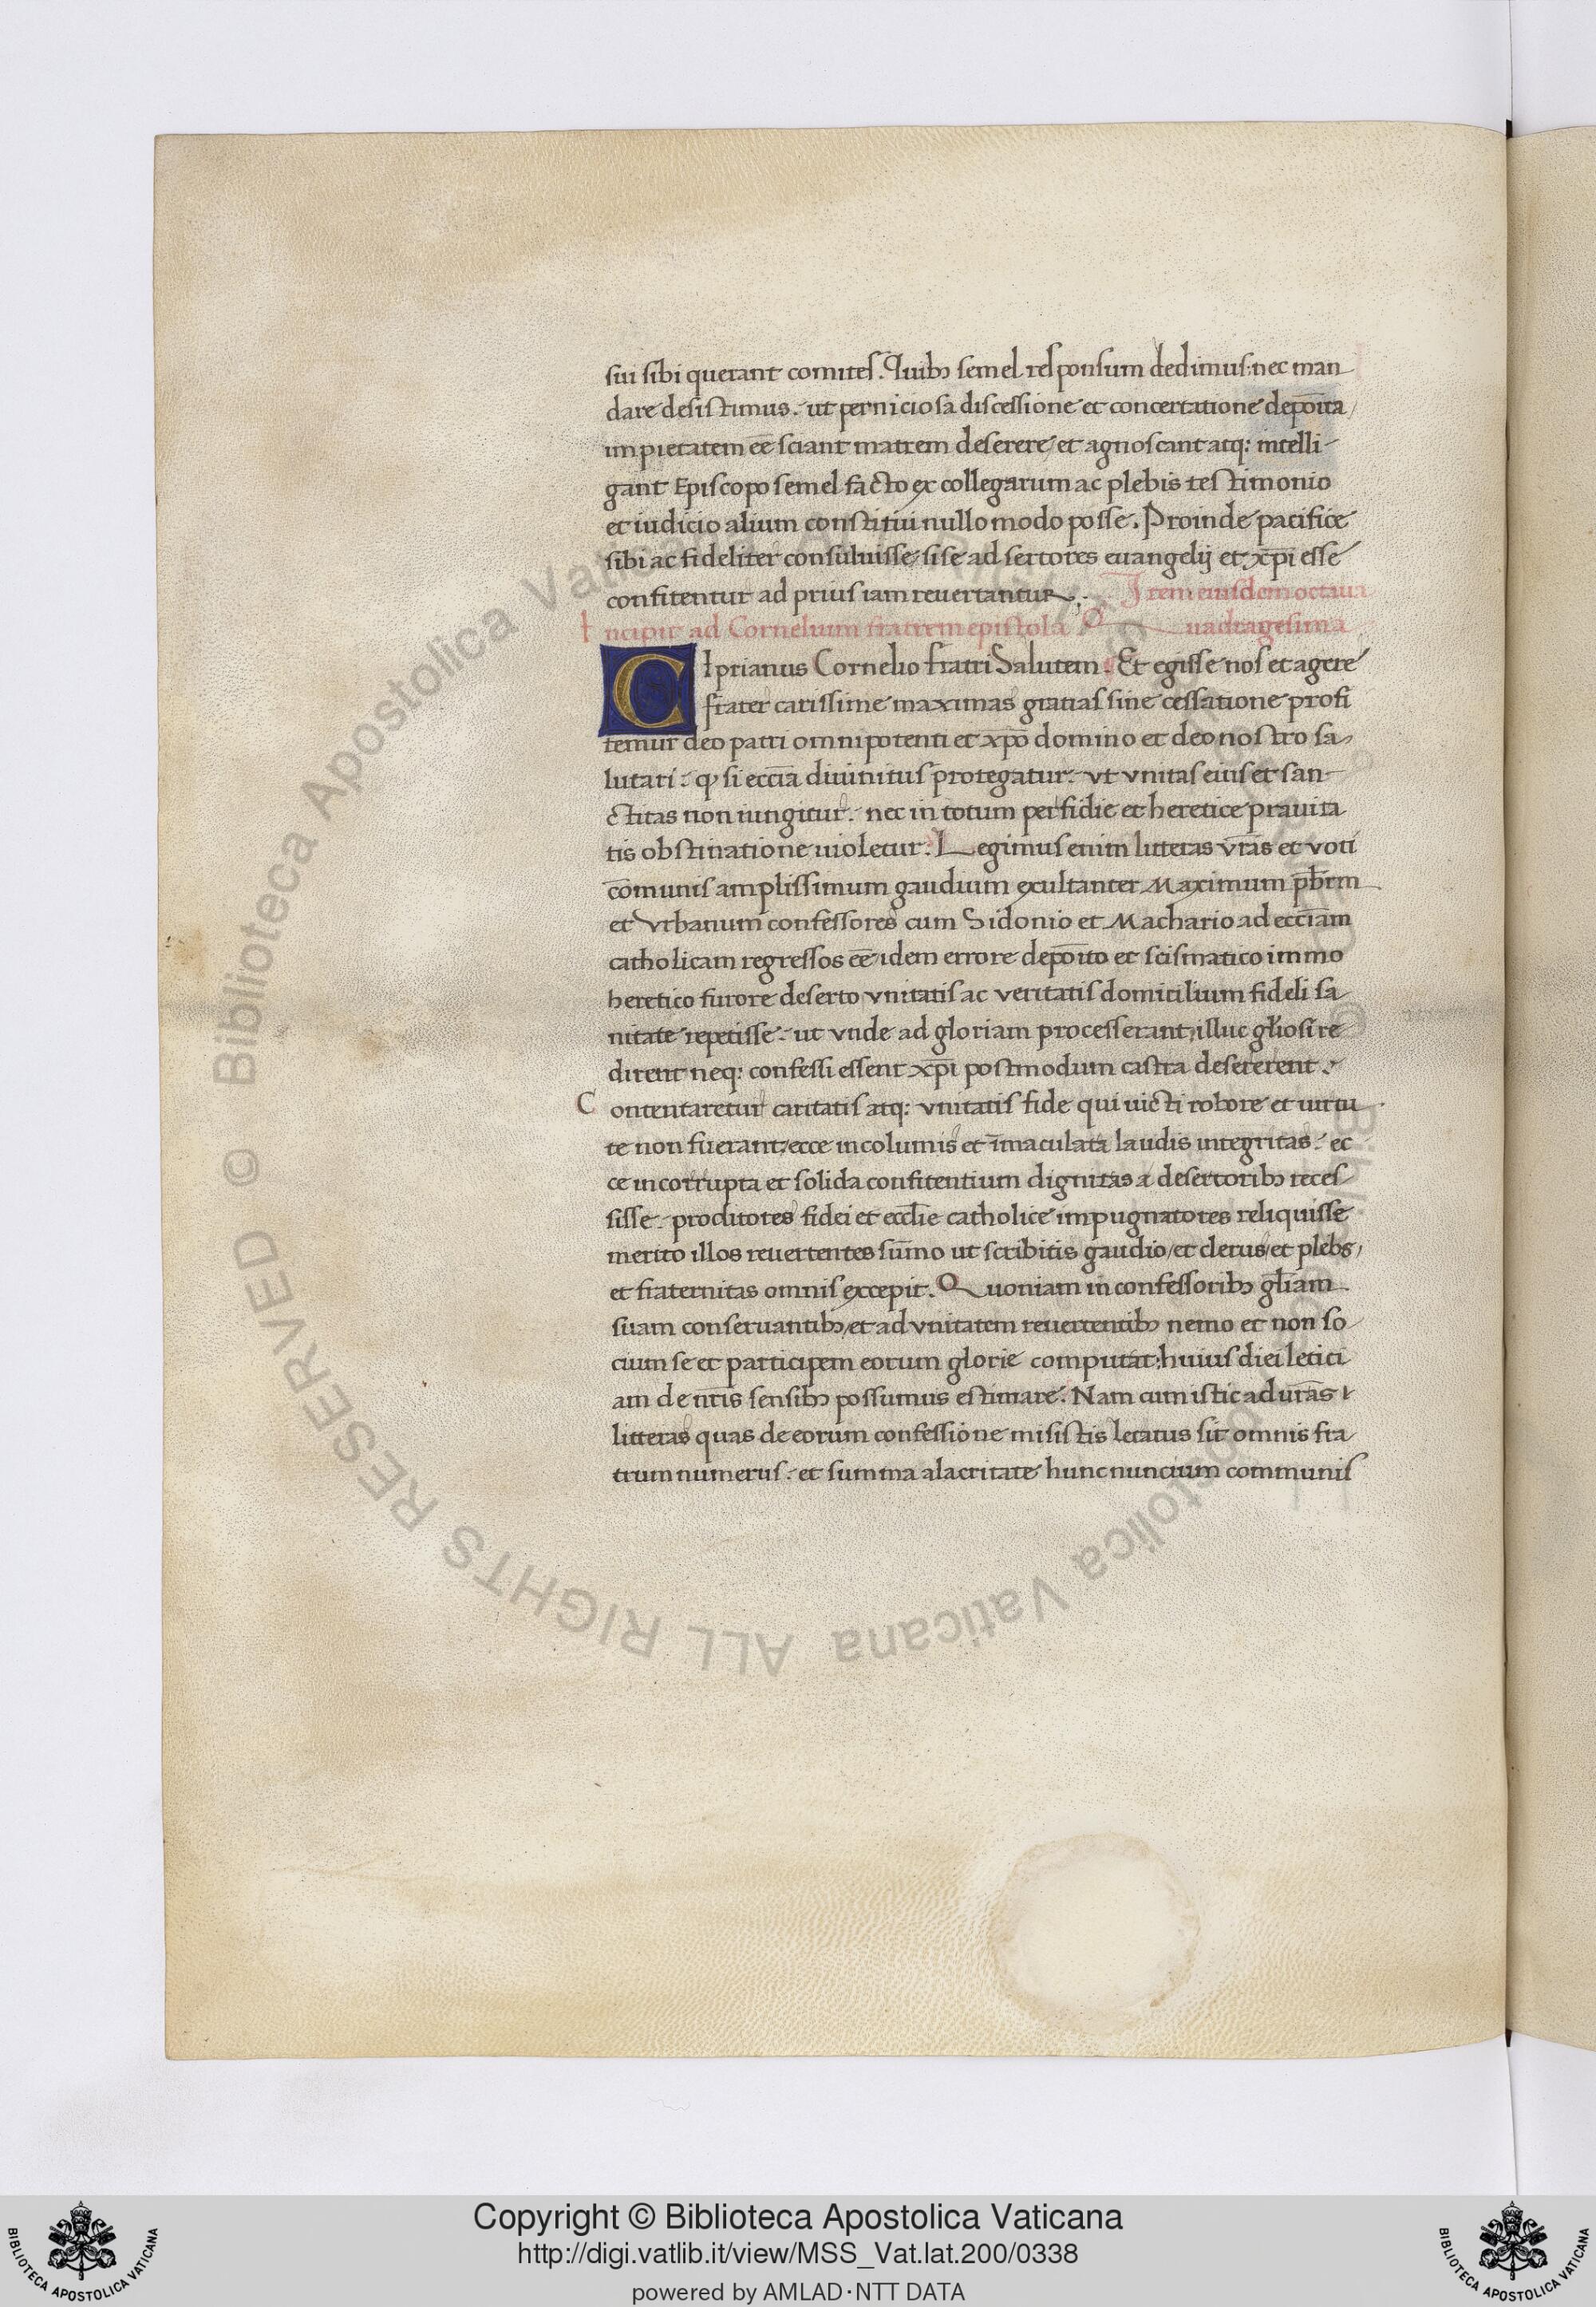 sui sibi querant comites. Quibꝫ semel responsum dedimus: nec man
dare desistimus. ut perniciosa discessione et concertatione depoīta
impietatem eē sciant matrem deserere et agnoscant atq: intelli-
gant Episcopo semel facto ex collegarum ac plebis testimonio
et iudicio alium constitui nullo modo posse. Proinde pacifice
sibi ac fideliter consuluisse, si se adsertores euangelij et xp̄i esse
confitentur ad prius iam reuertantur. Item eiusdem octaua
Incipit ad Cornelium fratrem epistola Quadragesima
CIprianus Cornelio fratri Salutem. Et egisse nos et agere
frater carissime maximas gratias sine cessatione profi
temur deo patri omnipotenti et xp̄o domino et deo nostro sa-
lutari. ꝙ si eccīa diuinitus protegatur. vt vnitas eius et san-
ctitas non iungitur. nec in totum perfidie et heretice prauita
tis obstinatione uioletur. Legimus enim litteras vr̄as et voti
cōmunis amplissimum gaudium exultanter Maximum pb̄rm
et Vrbanum confessores cum Sidonio et Machario ad ecc̄iam
catholicam regressos eē idem errore depōito et scismatico immo
heretico furore deserto vnitatis ac veritatis domicilium fideli sa
nitate repetisse. ut vnde ad gloriam processerant, illuc gl̄iosi re
dirent neq: confessi essent xp̄i postmodum castra desererent.
Contentaretur caritatis atq: vnitatis fide qui uicti robore et uirtu
te non fuerant, ecce incolumis et īmaculata laudis integritas. ec
ce incorrupta et solida confitentium dignitas a desertoribꝫ reces
sisse. proditores fidei et eccl̄ie catholice impugnatores reliquisse
merito illos reuertentes sūmo ut scribitis gaudio, et clerus, et plebs,
et fraternitas omnis excepit. Quoniam in confessoribꝫ gl̄iam
suam conseruantibꝫ, et ad vnitatem reuertentibꝫ nemo et non so
cium se et participem eorum glorie computat: huius diei letici
am de nr̄is sensibꝫ possumus estimare. Nam cum istic ad urās
litteras quas de eorum confessione misistis letatus sit omnis fra
trum numerus. et summa alacritate hunc nuncium communis
© Biblioteca Apostolica Vaticana ALL RIGHTS RESERVED
Copyright © Biblioteca Apostolica Vaticana
http://digi.vatlib.it/view/MSS_Vat.lat.200/0338
powered by AMLAD·NTT DATA
BIBLIOTECA APOSTOLICA VATICANA
BIBLIOTECA APOSTOLICA VATICANA